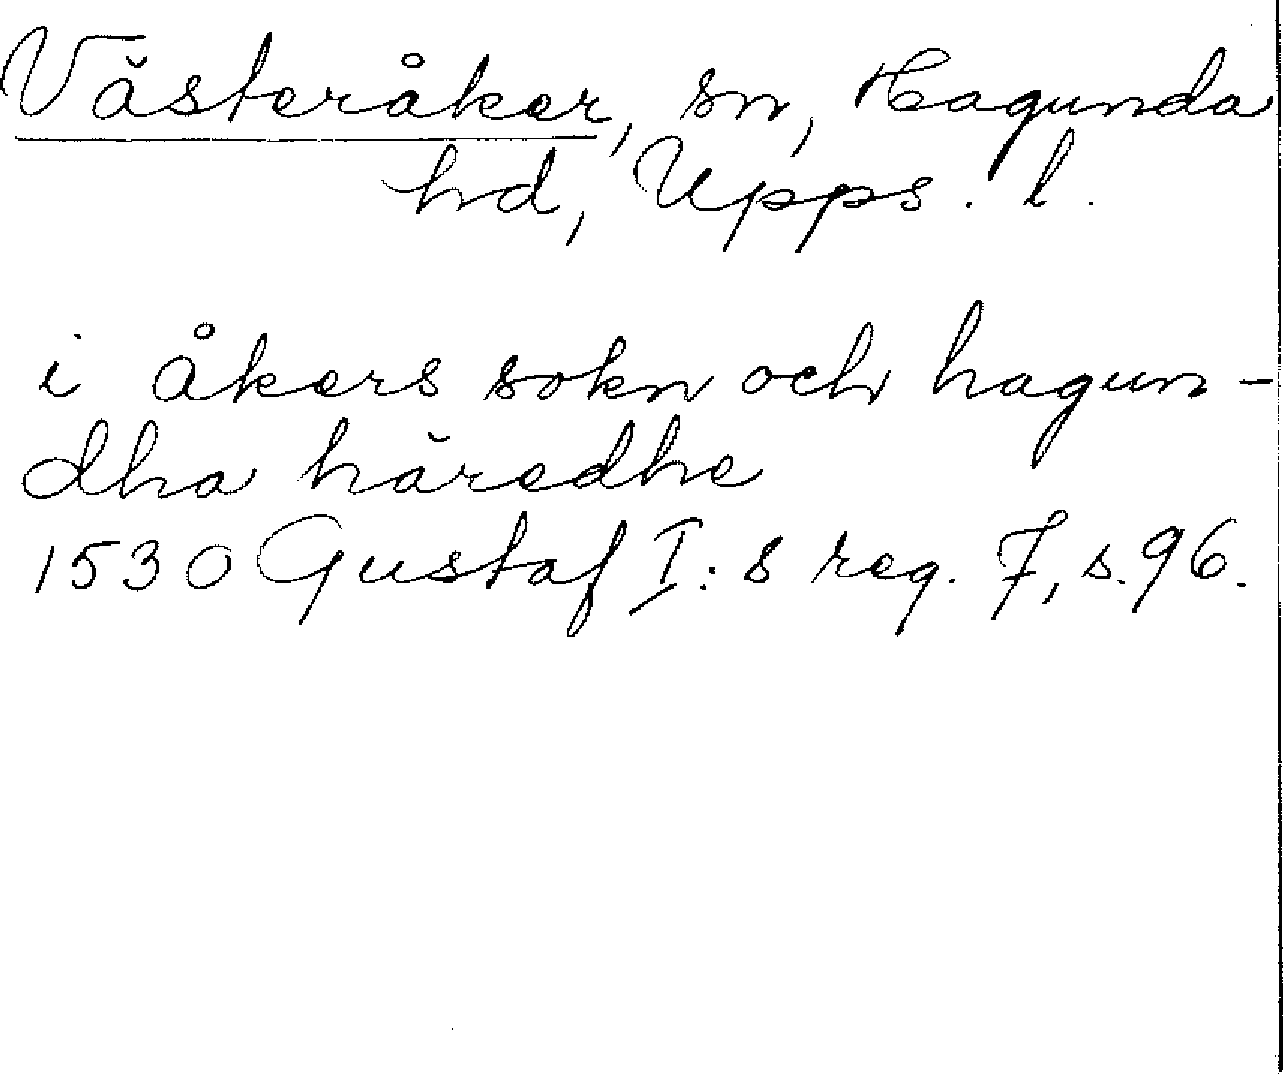 Västeråker, sn, Hagunda
hd, Upps. l.
i åkers sokn och hagun-
dha häredhe
1530 Gustaf I:s reg. 7, s. 96.